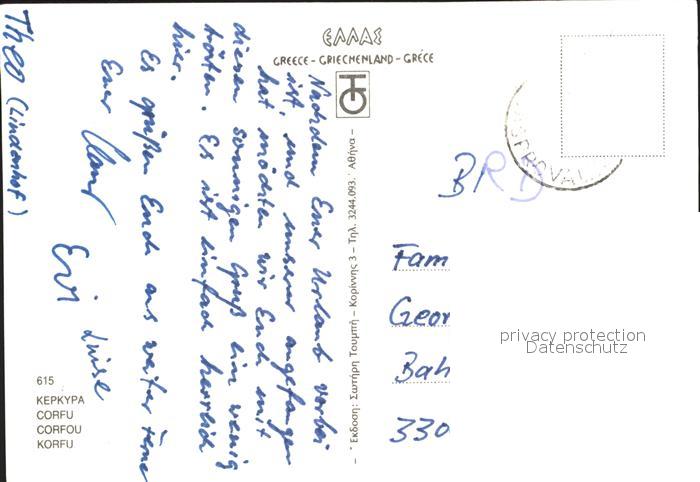 ΕΛΛΑΣ
GREECE - GRIECHENLAND - GRÈCE
Nachdem Euer Urlaub vorbei
ist, und unserer angefangen
hat möchten wir Euch mit
diesen sonnigen Gruß ein wenig
trösten. Es ist einfach herrlich
hier.
Es grüßen Euch aus weiter Ferne
Euer
Evi Luise
Theo (Lindenhof)
– Έκδοση: Σωτήρη Τουμπή – Κορίννης 3 – Τηλ. 3244.093. Αθήνα –
BRD
Fam
Geor
Bah
330
privacy protection
Datenschutz
615
ΚΕΡΚΥΡΑ
CORFU
CORFOU
KORFU